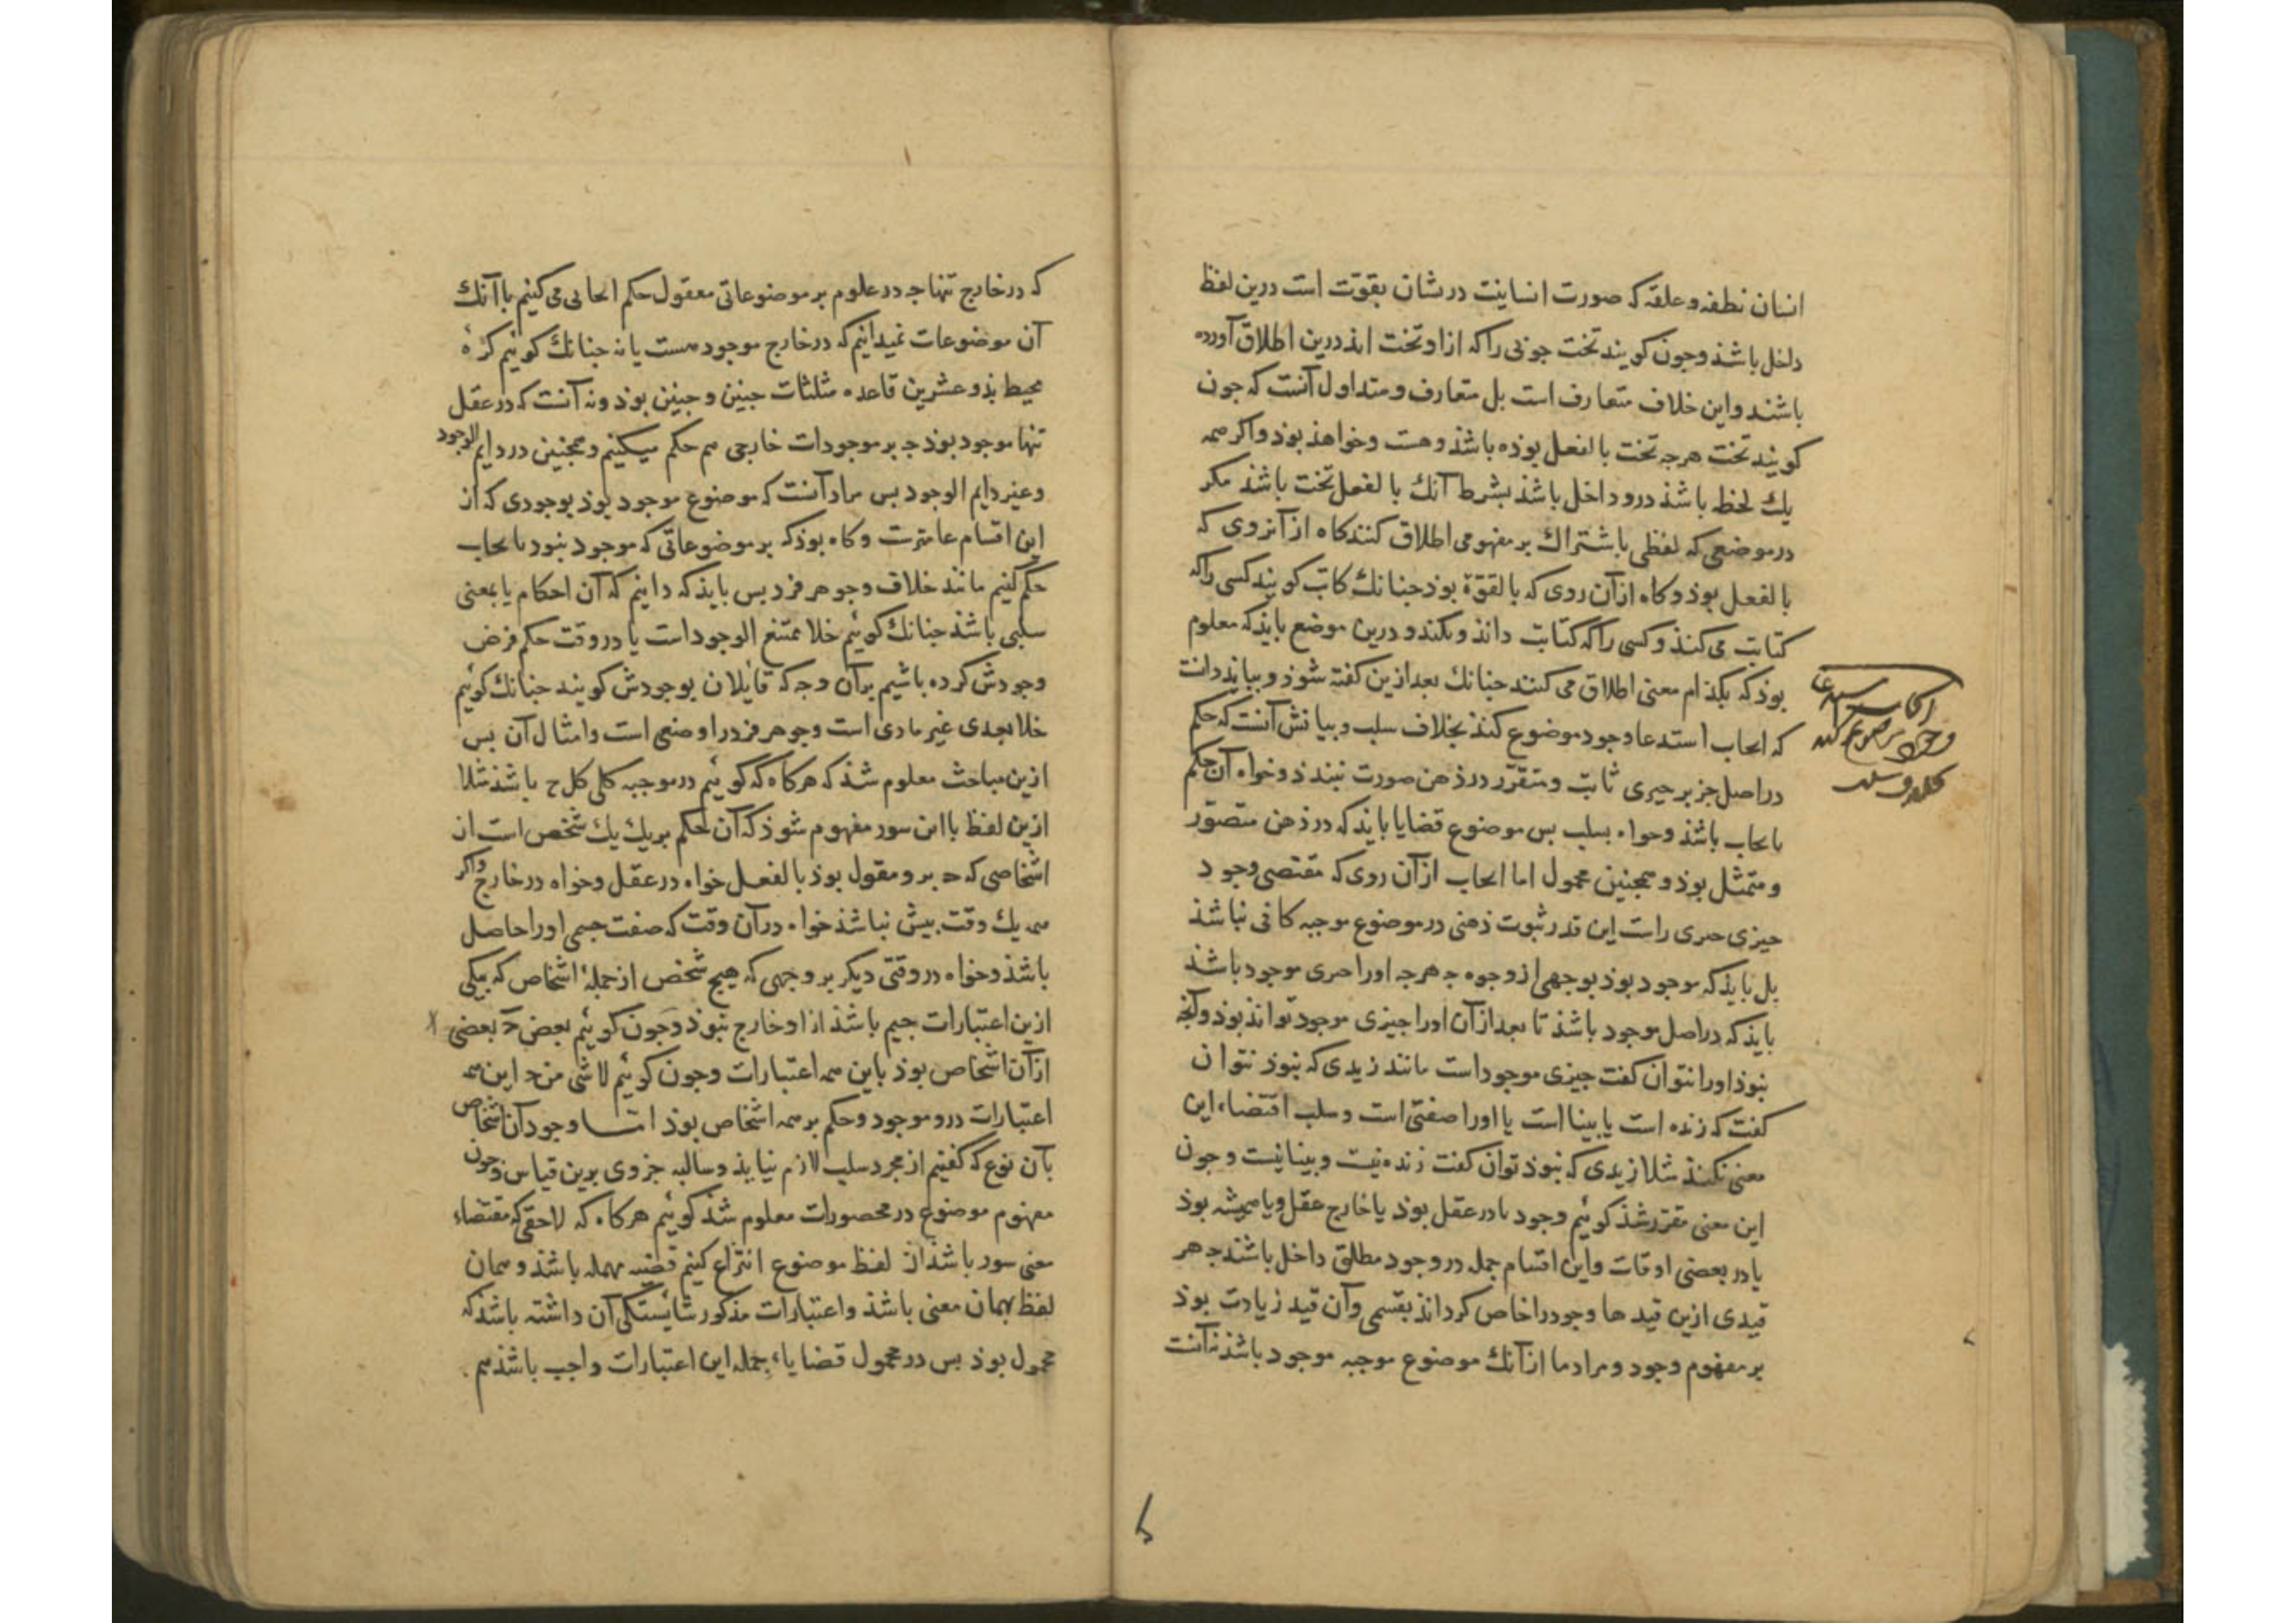 انسان نطفه و علقه که صورت انسانیت در شان بقوت است درین لفظ
داخل باشذ و جون کویند تخت جوبی را که ازو تخت اید درین اطلاق آورده
باشند و این خلاف متعارفست بل متعارف و متداول آنست که جون
کویند تخت هرجه تخت بالفعل بوذه باشذ و هست و خواهذ بوذ و اکر همه
یك لحظه باشذ درو داخل باشذ بشرط آنك بالفعل تخت باشذ مکر
در موضعی که لفظی باشتراك بر مفهومی اطلاق کنند کاه از آنروی که
بالفعل بوذ و کاه از آن روی که بالقوّة بوذ جنانك کاتب کویند کسی را که
کتابت می کنذ و کسی را که کتابت دانذ و نکند و درین موضع بایذ که معلوم
بوذ که بکذام معنی اطلاق می کنند جنانك بعد ازین کفته شوذ و ببایذ دانست
که ایجاب استدعا وجود موضوع کنذ بخلاف سلب و بیانش آنست که حکم
در اصل جز بر جیزی ثابت و متقرّر در ذهن صورت نبندذ و خواه آن حکم
بایجاب باشذ و خواه بسلب بس موضوع قضایا بایذ که در ذهن متصوّر
و متمثل بوذ و همجنین محمول اما ایجاب از آن روی که مقتضی وجود
جیزی جیزی راست این قدر ثبوت ذهنی در موضوع موجبه کافی نباشذ
بل بایذ که موجود بوذ بوجهی از وجوه جه هرجه اورا جیزی موجود باشذ
بایذ که در اصل موجود باشذ تا بعد از آن اورا جیزی موجود توانذ بوذ و آنج
نبوذ اورا نتوان کفت جیزی موجود است مانند زیدی که نبوذ نتوان
کفت که زنده است یا بینا است یا اورا صفتی است و سلب اقتضاء این
معنی نکنذ مثلا زیدی که نبوذ توان کفت زنده نیست و بینا نیست و جون
این معنی مقرّر شذ کوئیم وجود یا در عقل بوذ یا خارج عقل و یا همیشه بوذ
یا در بعضی اوقات و این اقسام جمله در وجود مطلق داخل باشند جه هر
قیدی ازین قیدها وجود را خاص کردانذ بقسمی و آن قید زیادت بوذ
بر مفهوم وجود و مراد ما از آنك موضوع موجبه موجود باشذ نه آنست
که در خارج تنها جه در علوم بر موضوعاتی معقول حکم ایجابی می کنیم با آنك
آن موضوعات نمیدانیم که در خارج موجود هست یا نه جنانك کوئیم کرهٔ
محیط بذو عشرین قاعده مثلثات جنین و جنین بوذ و نه آنست که در عقل
تنها موجود بوذ جه بر موجودات خارجی هم حکم میکنیم و همجنین در دایم الوجود
و غیر دایم الوجود بس مراد آنست که موضوع موجود بوذ بوجودی که از
این اقسام عامترست و کاه بوذ که بر موضوعاتی که موجود نبود بایجاب
حکم کنیم مانند خلاف وجوهر فرد بس بایذ که دانیم که آن احکام یا بمعنی
سلبی باشذ جنانك کوئیم خلا ممتنع الوجود است یا در وقت حکم فرض
وجودش کرده باشیم بر آن وجه که قایلان بوجودش کویند جنانك کوئیم
خلا بعدی غیر مادی است و جوهر فرد را وضعی است و امثال آن بس
ازین مباحث معلوم شذ که هرکاه که کوئیم در موجبه کلی کل ج باشذ مثلا
ازین لفظ با این سور مفهوم شوذ که آن حکم بر یك یك شخص است از
اشخاصی که ج برو مقول بوذ بالفعل خواه در عقل و خواه در خارج و اکر
همه یك وقت بیش نباشذ خواه در آن وقت که صفت جیمی اورا حاصل
باشذ و خواه در وقتی دیکر بر وجهی که هیج شخص از جملهٔ اشخاص که بیکی
ازین اعتبارات جیم باشذ ازو خارج نبوذ و جون کوئیم بعض ج بعضی
از آن اشخاص بوذ باین همه اعتبارات و جون کوئیم لا شی من ج این همه
اعتبارات درو موجود و حکم بر همه اشخاص بوذ اما وجود آن اشخاص
بآن نوع که کفتیم از مجرد سلب لازم نیایذ و سالبه جزوی برین قیاس و جون
مفهوم موضوع در محصورات معلوم شذ کوئیم هرکاه که لاحقی که مقتضاء
معنی سور باشذ از لفظ موضوع انتزاع کنیم قضیه مهمله باشذ و همان
لفظ بهمان معنی باشذ و اعتبارات مذکور شایستکی آن داشته باشذ که
محمول بوذ بس در محمول قضایاء جمله این اعتبارات واجب باشذ هم